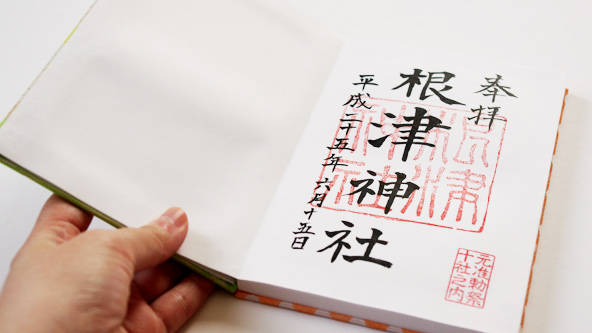 奉拝
根津神社
平成二十五年六月十五日
根津神社
元准勅祭
十社之内